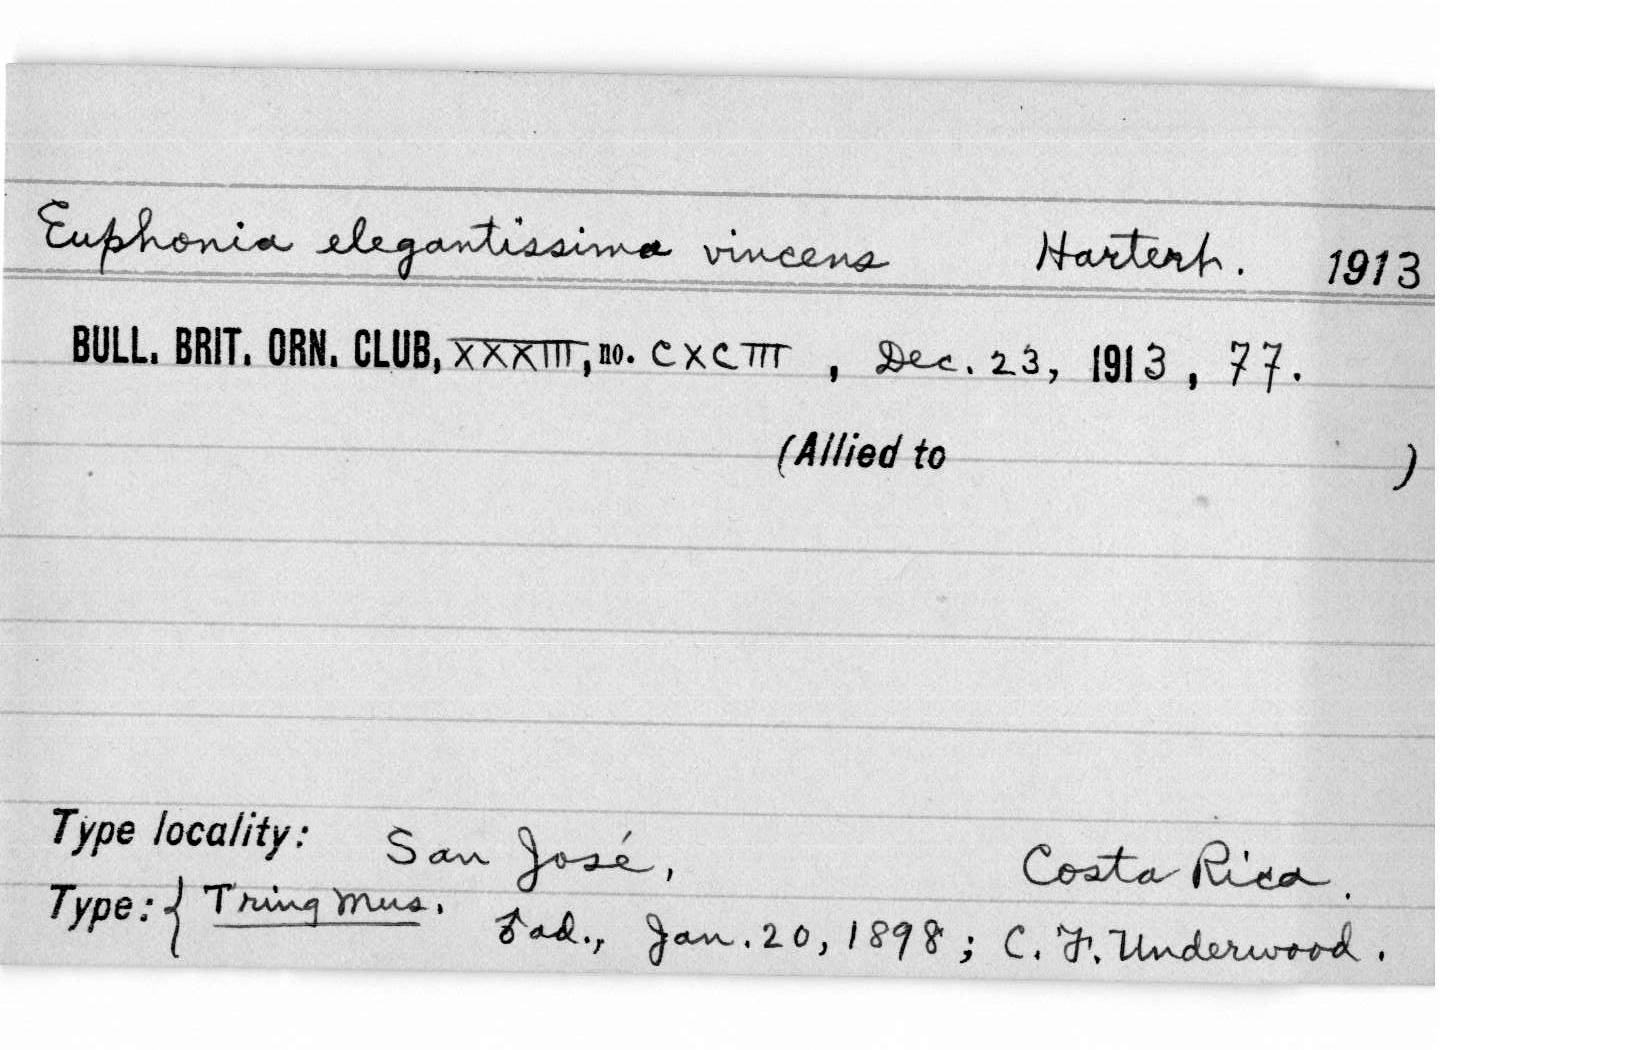 Euphonia elegantissima vincens Hartert. 1913
BULL. BRIT. ORN. CLUB, XXXIII, no. CXCIII, Dec. 23, 1913, 77.
(Allied to )
Type locality: San José, Costa Rica.
Type: { Tring Mus. ♂ad., Jan. 20, 1898; C. F. Underwood.